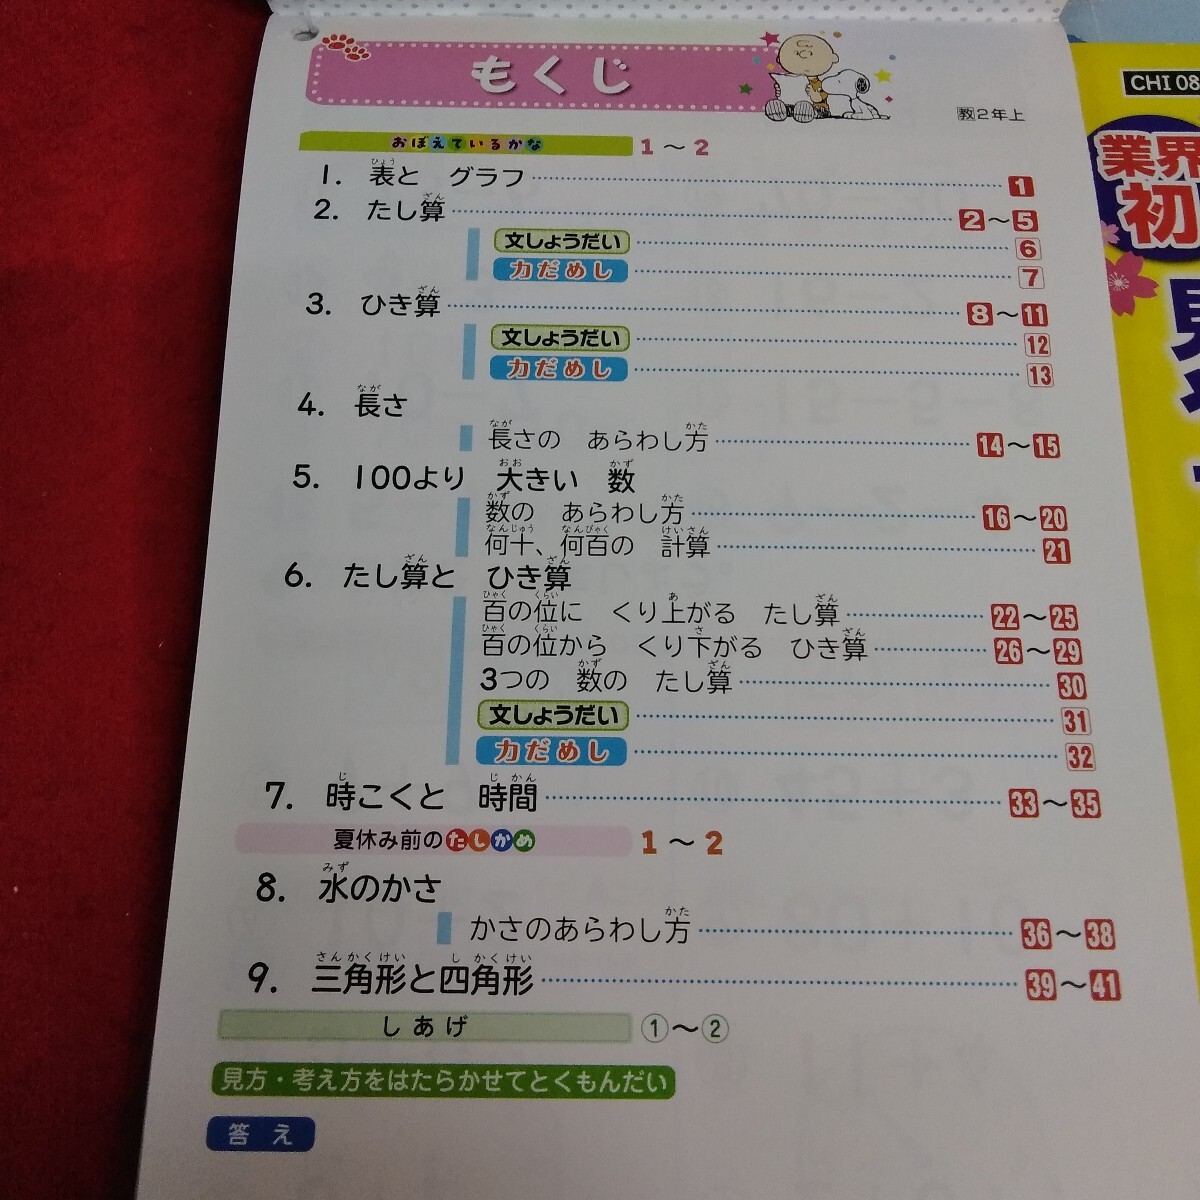 もくじ
教2年上
おぼえているかな 1～2
1. 表と グラフ 1
2. たし算 2～5
文しょうだい 6
力だめし 7
3. ひき算 8～11
文しょうだい 12
力だめし 13
4. 長さ
長さの あらわし方 14～15
5. 100より 大きい 数
数の あらわし方 16～20
何十、何百の 計算 21
6. たし算と ひき算
百の位に くり上がる たし算 22～25
百の位から くり下がる ひき算 26～29
3つの 数の たし算 30
文しょうだい 31
力だめし 32
7. 時こくと 時間 33～35
夏休み前のたしかめ 1～2
8. 水のかさ
かさのあらわし方 36～38
9. 三角形と四角形 39～41
しあげ ①～②
見方・考え方をはたらかせてとくもんだい
答え
CHI 08
業界
初